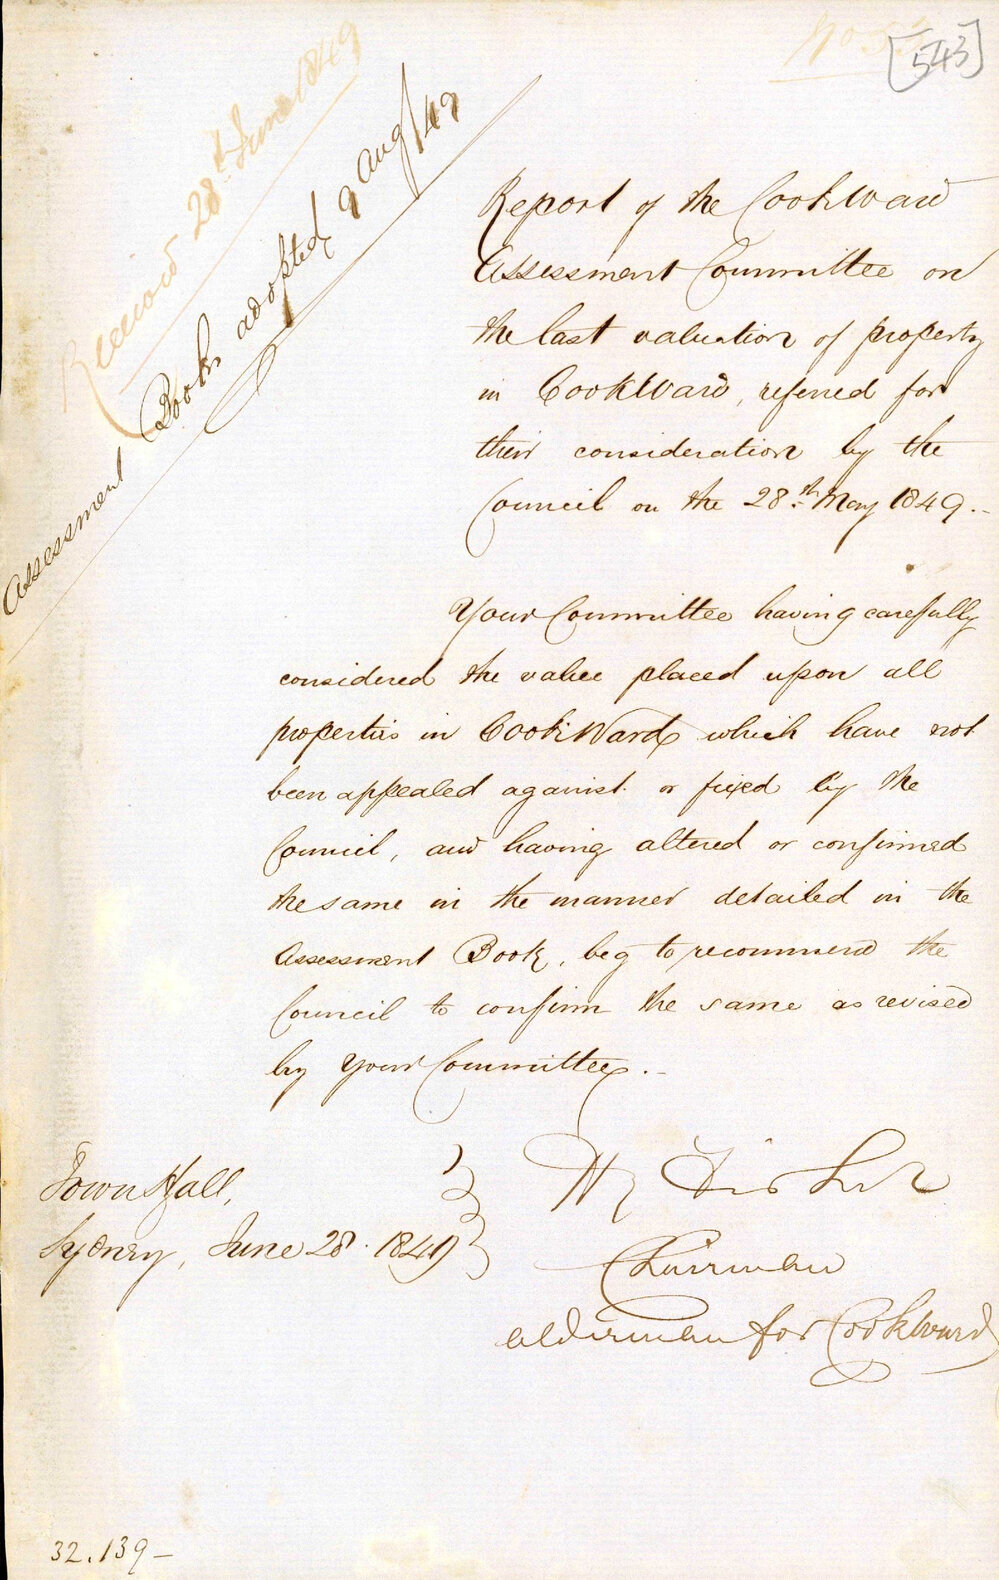 [543]
Received 28th. June 1849
Assessment Books adopted 9 Aug/49
Report of the Cook Ward
Assessment Committee on
the last valuation of property
in Cook Ward, referred for
their consideration by the
Council on the 28th. May 1849.-
Your Committee having carefully
considered the value placed upon all
properties in Cook Ward which have not
been appealed against or fixed by the
Council, and having altered or confirmed
the same in the manner detailed in the
Assessment Book, beg to recommend the
Council to confirm the same as revised
by Your Committee.-
Town Hall,
Sydney, June 28. 1849
Chairman
Alderman for Cook Ward
32.139-